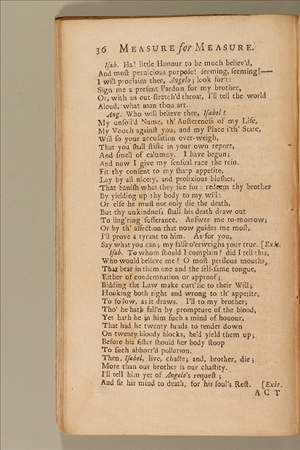 36 MEASURE for MEASURE.
Iſab. Ha! little Honour to be much believ'd,
And moſt pernicious purpoſe! ſeeming, ſeeming!—
I will proclaim thee, Angelo; look for't:
Sign me a preſent Pardon for my brother,
Or, with an out-ſtretch'd throat, I'll tell the world
Aloud, what man thou art.
Ang. Who will believe thee, Iſabel?
My unſoil'd Name, th' Auſtereneſs of my Life,
My Vouch againſt you, and my Place i'th' State,
Will ſo your accuſation over-weigh,
That you ſhall ſtifle in your own report,
And ſmell of calumny. I have begun;
And now I give my ſenſual race the rein.
Fit thy conſent to my ſharp appetite,
Lay by all nicety, and prolixious bluſhes,
That baniſh what they ſue for: redeem thy brother
By yielding up thy body to my will:
Or elſe he muſt not only die the death,
But thy unkindneſs ſhall his death draw out
To ling'ring ſufferance. Anſwer me to-morrow;
Or by th' affection that now guides me moſt,
I'll prove a tyrant to him. As for you,
Say what you can; my falſe o'erweighs your true. [Exit.
Iſab. To whom ſhould I complain? did I tell this,
Who would believe me? O moſt perilous mouths,
That bear in them one and the ſelf-ſame tongue,
Either of condemnation or approof;
Bidding the Law make curt'ſie to their Will;
Hooking both right and wrong to th' appetite,
To follow, as it draws. I'll to my brother;
Tho' he hath fall'n by prompture of the blood,
Yet hath he in him ſuch a mind of honour,
That had he twenty heads to tender down
On twenty bloody blocks, he'd yield them up;
Before his ſiſter ſhould her body ſtoop
To ſuch abhorr'd pollution.
Then, Iſabel, live, chaſte; and, brother, die;
More than our brother is our chaſtity.
I'll tell him yet of Angelo's requeſt;
And fit his mind to death, for his ſoul's Reſt. [Exit.
ACT